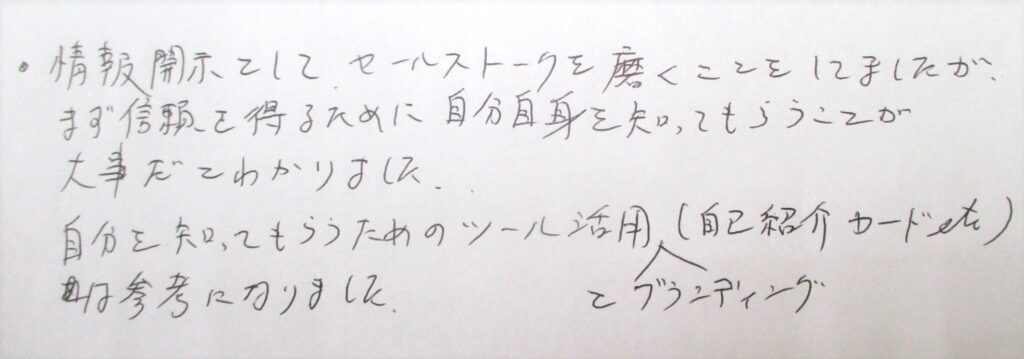 ・情報開示として セールストークを磨くことをしてましたが、
まず信頼を得るために自分自身を知ってもらうことが
大事だとわかりました.
自分を知ってもらうためのツール活用(自己紹介カードetc)
とブランディング
は参考になりました.